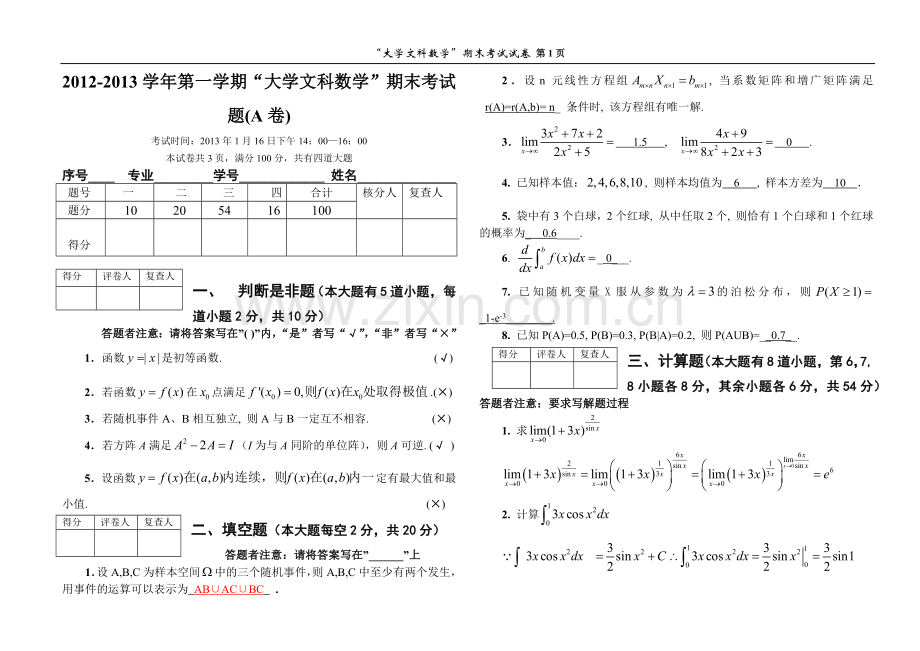 “大学文科数学”期末考试试卷 第1页
2012-2013 学年第一学期“大学文科数学”期末考试
题(A 卷)
考试时间：2013 年 1 月 16 日下午 14：00—16：00
本试卷共 3 页，满分 100 分，共有四道大题
序号____ 专业________ 学号____________ 姓名______________
题号 一 二 三 四 合计 核分人 复查人
题分 10 20 54 16 100
得分
得分 评卷人 复查人
一、 判断是非题（本大题有 5 道小题，每
道小题 2 分，共 10 分）
答题者注意：请将答案写在”( )”内，“是”者写“√”，“非”者写“×”
1．函数 y=|x| 是初等函数. (√)
2．若函数 y = f(x) 在 x₀ 点满足 f'(x₀) = 0,则f(x)在x₀处取得极值.(×)
3．若随机事件 A、B 相互独立, 则 A 与 B 一定互不相容. (×)
4．若方阵 A 满足 A² − 2A = I（I 为与 A 同阶的单位阵），则 A 可逆. (√ )
5．设函数 y = f(x)在(a,b)内连续，则f(x)在(a,b)内一定有最大值和最
小值. (×)
得分 评卷人 复查人
二、填空题（本大题每空 2 分，共 20 分）
答题者注意：请将答案写在”______”上
1.设 A,B,C 为样本空间 Ω 中的三个随机事件,则 A,B,C 中至少有两个发生,
用事件的运算可以表示为_AB∪AC∪BC_ ．
2．设 n 元线性方程组 A_{m×n}X_{n×1} = b_{m×1}, 当系数矩阵和增广矩阵满足
r(A)=r(A,b)= n_ 条件时, 该方程组有唯一解.
3．lim_{x→∞} (3x² + 7x + 2)/(2x² + 5) = __1.5__ , lim_{x→∞} (4x + 9)/(8x² + 2x + 3) = __0__ .
4. 已知样本值：2,4,6,8,10 , 则样本均值为__6__, 样本方差为__10__．
5. 袋中有 3 个白球，2 个红球, 从中任取 2 个, 则恰有 1 个白球和 1 个红球
的概率为___0.6____.
6. d/dx ∫_a^b f(x)dx = _0__.
7. 已知随机变量 X 服从参数为 λ = 3 的泊松分布，则 P(X ≥ 1) =
_1-e⁻³________.
8. 已知 P(A)=0.5, P(B)=0.3, P(B|A)=0.2, 则 P(AUB)= _0.7_.
得分 评卷人 复查人
三、计算题（本大题有 8 道小题，第 6，7，
8 小题各 8 分，其余小题各 6 分，共 54 分）
答题者注意：要求写解题过程
1. 求 lim_{x→0}(1+3x)^{2/sin x}
lim_{x→0}(1+3x)^{2/sin x} = lim_{x→0}((1+3x)^{1/3x})^{6x/sin x} = (lim_{x→0}(1+3x)^{1/3x})^{lim_{x→0} 6x/sin x} = e⁶
2. 计算 ∫_0^1 3x cos x² dx
∵∫ 3x cos x² dx = 3/2 sin x² + C ∴∫_0^1 3x cos x² dx = 3/2 sin x² |_0^1 = 3/2 sin 1
www.zixin.com.cn